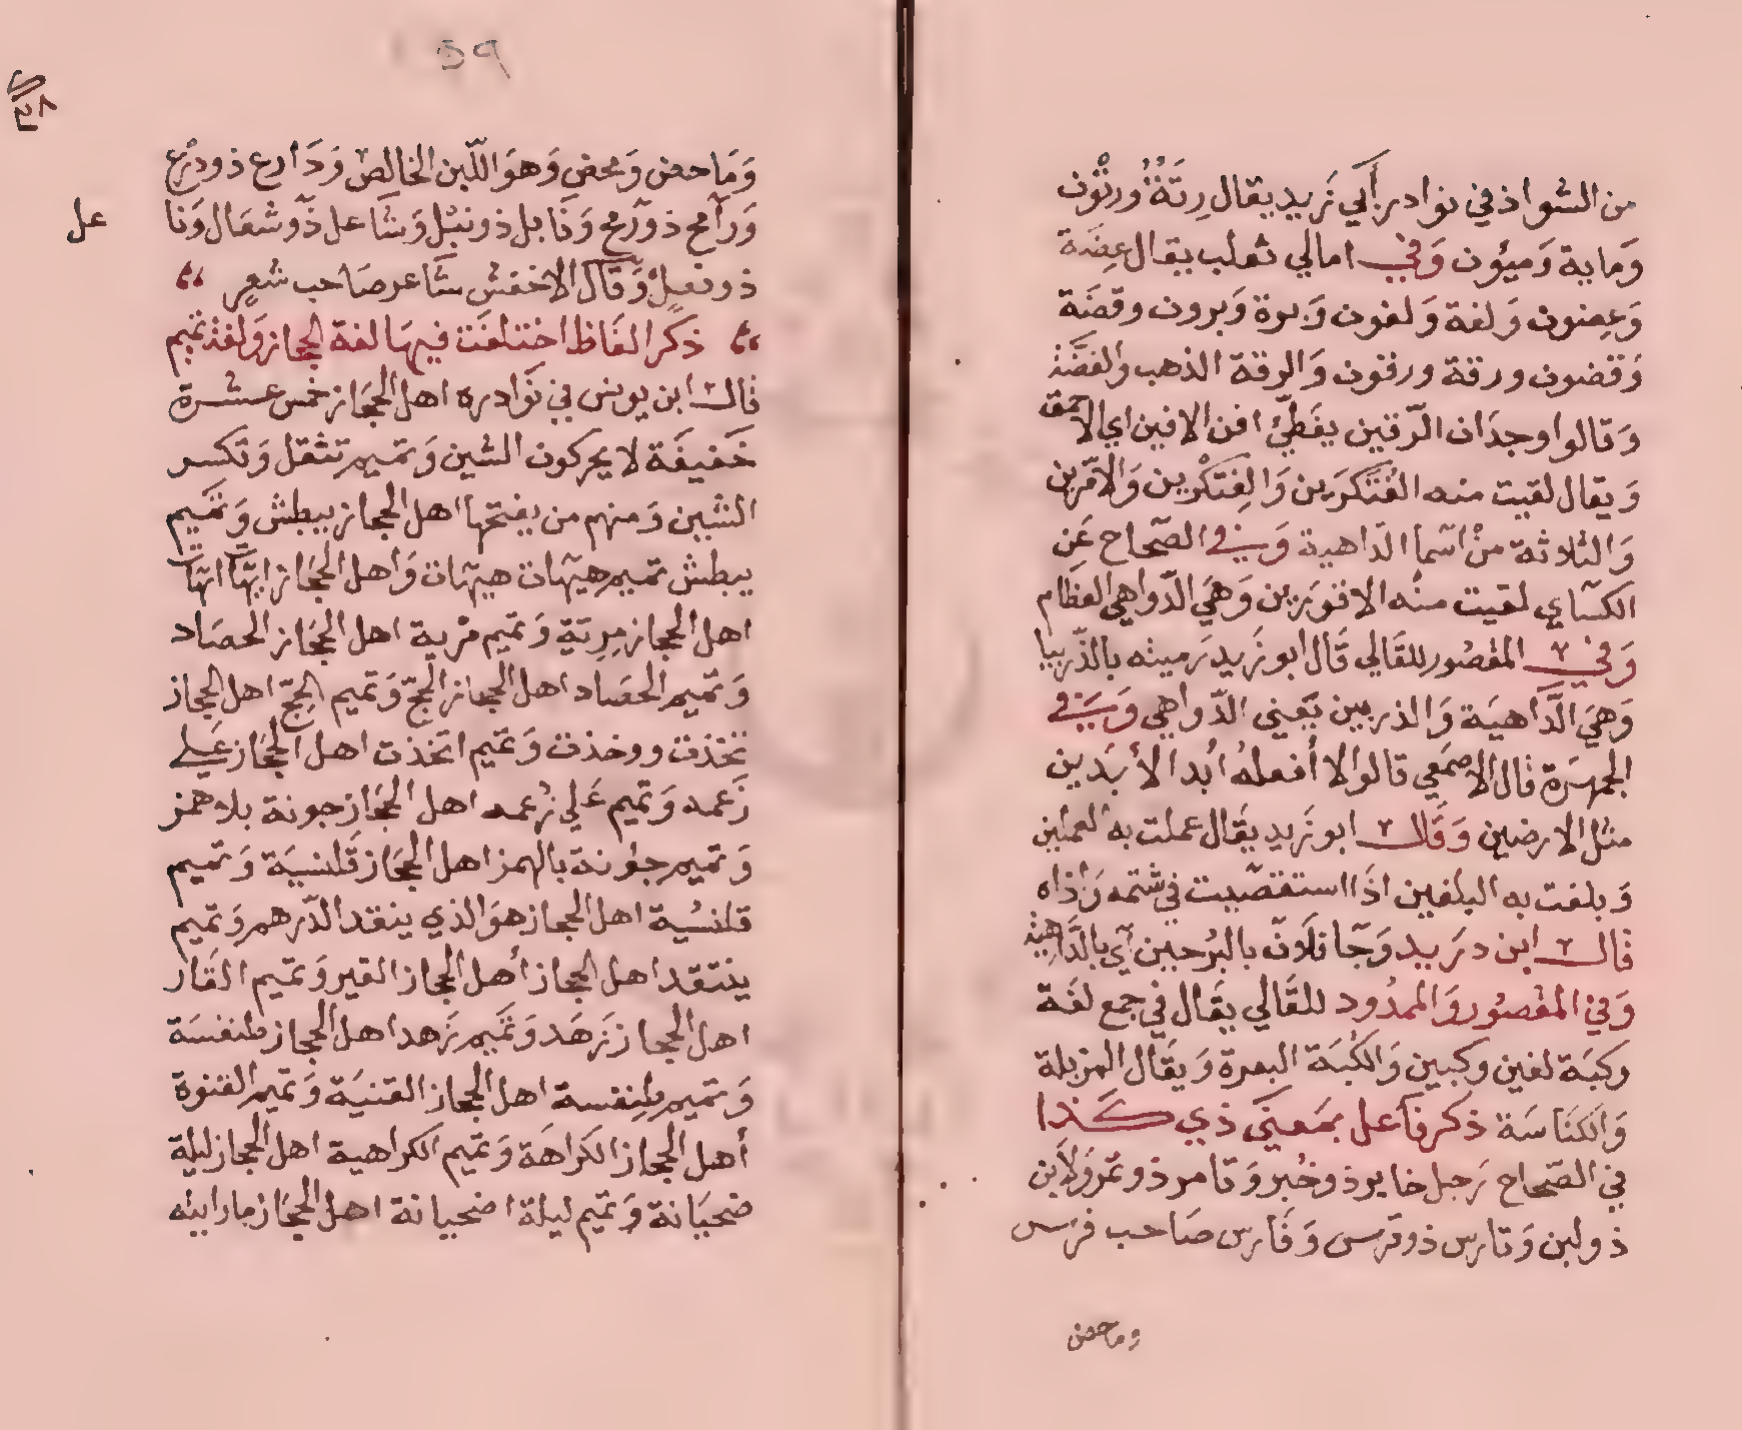 من الشواذ في نوادر أبي زيد يقال رِثَةٌ ورثون
وَماية وَميئون وَفي امالي ثعلب يقال عِضَة
وَعِضون وَلغة وَلغون وَبرة وَبرون وقضَة
وَقضون ورقة ورقون وَالرقة الذهب والفضَّة
وَقالوا وجدَان الرّقين يغَطيّ افن الافين اي الاحمق
وَيقال لقيت منه الفُتَكرَين وَالفِتَكْرين وَالامَرّين
وَالثلاثة منْ اسمآ الدَاهية وَفي الصّحاح عَن
الكسآي لقيت منُه الاقورَين وَهيَ الدّواهي العظام
وَفي المقصُور للقَالي قَال ابو زَيد رَميته بالذّربيا
وَهيَ الدَّاهيَة وَالذربين يَعني الدّواهي وَفي
الجمهَرَة قال الاصمَعي قالوا لا أفعلهُ أبُد الأبَدين
مثل الارضين وَقَال ابو زَيد يقَال عملت به العملين
وَبلغت به البلغين اذَا استقصّيت في شتمه وَأذاه
قال ابن درَيد وَجآ نلَان بالبُرحين آي بالدَّاهية
وَفي المقصُور وَالممدُود للقَالي يقَال في جمع لغَة
وكبَة لغين وكبين وَالكُبَة البعرة وَيقَال المزبلة
وَالكنَاسَة ذكر فَاعل بمَعنَي ذي كَذا
في الصّحاح رَجل خابر ذو خُبر وَتامر ذو تمر وَلاَبن
ذو لبن وَتارس ذو تَرس وَفَارس صَاحب فرَس
وماحض
59
٣٨
وَمَاحض وَمحض وَهوَ اللّبن الخالص وَدَارع ذو دِرْع
وَرَآمح ذو رُمح وَنَابل ذو نبْل وَشَاعل ذو شعَال وَنا
عل
ذو نعِلْ وَقَال الاخفش شَاعر صَاحب شعرٍ
ذكَر الفَاظ اختلفَت فيهَا لغة الحجاز وَلغة تميم
قال ابن يونس في نَوادره اهل الحجَاز خمس عشرة
خَفيفَة لا يحركون الشين وَتميم تثقل وَتكسر
الشين وَمنهم من يفتحها اهل الحجاز يبطش وَتمَيم
يبطش تميم هيَهات هيهَات وَاهل الحجَاز ايهَّا ايهَّا
اهل الحجاز مِرِيَة وَتميم مرية اهل الحجَاز الحصَاد
وَتميم الحصَاد اهل الحجاز الحَجّ وَتميم الحِجّ اهل الحجاز
تخذت ووخذت وَتميم اتخذت اهل الحجَاز عَلي
زَعمه وَتميم عَلي زُعمه اهل الحجَاز جونة بلا همز
وَتميم جؤنة بالهمز اهل الحجَاز قَلنسيَة وَتميم
قلنسُية اهل الحجاز هوَ الذي ينقد الدّرهم وَتميم
ينتقد اهل الحجاز أهل الحجاز القير وَتميم القَار
اهل الحجاز زَهَد وَتمَيم زَهد اهل الحجاز طنفسَة
وَتميم طِنِفسة اهل الحجَاز القنيَة وَتميم القنوة
أهل الحجاز الكَراهَة وَتميم الكراهية اهل الحجاز ليلة
ضحيَانة وَتميم ليلة اضحيانة اهل الحجَاز مارايته